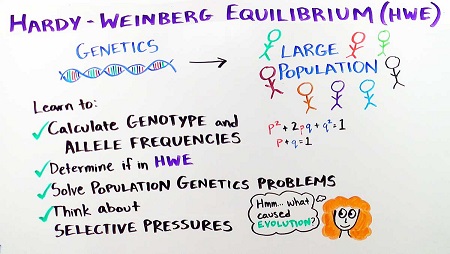 HARDY-WEINBERG EQUILIBRIUM (HWE)
GENETICS
LARGE
POPULATION
Learn to:
✓Calculate GENOTYPE and
ALLELE FREQUENCIES
✓Determine if in HWE
✓Solve POPULATION GENETICS PROBLEMS
✓Think about
SELECTIVE PRESSURES
p²+2pq+q²=1
p+q=1
Hmm... what
caused
EVOLUTION?